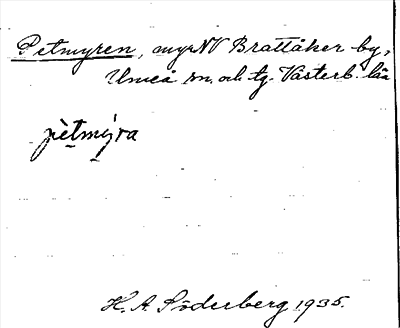 Petmyren, myr NV Brattåker by,
Umeå sn. och tg. Västerb. län
pètmýra
H. A. Söderberg 1935.